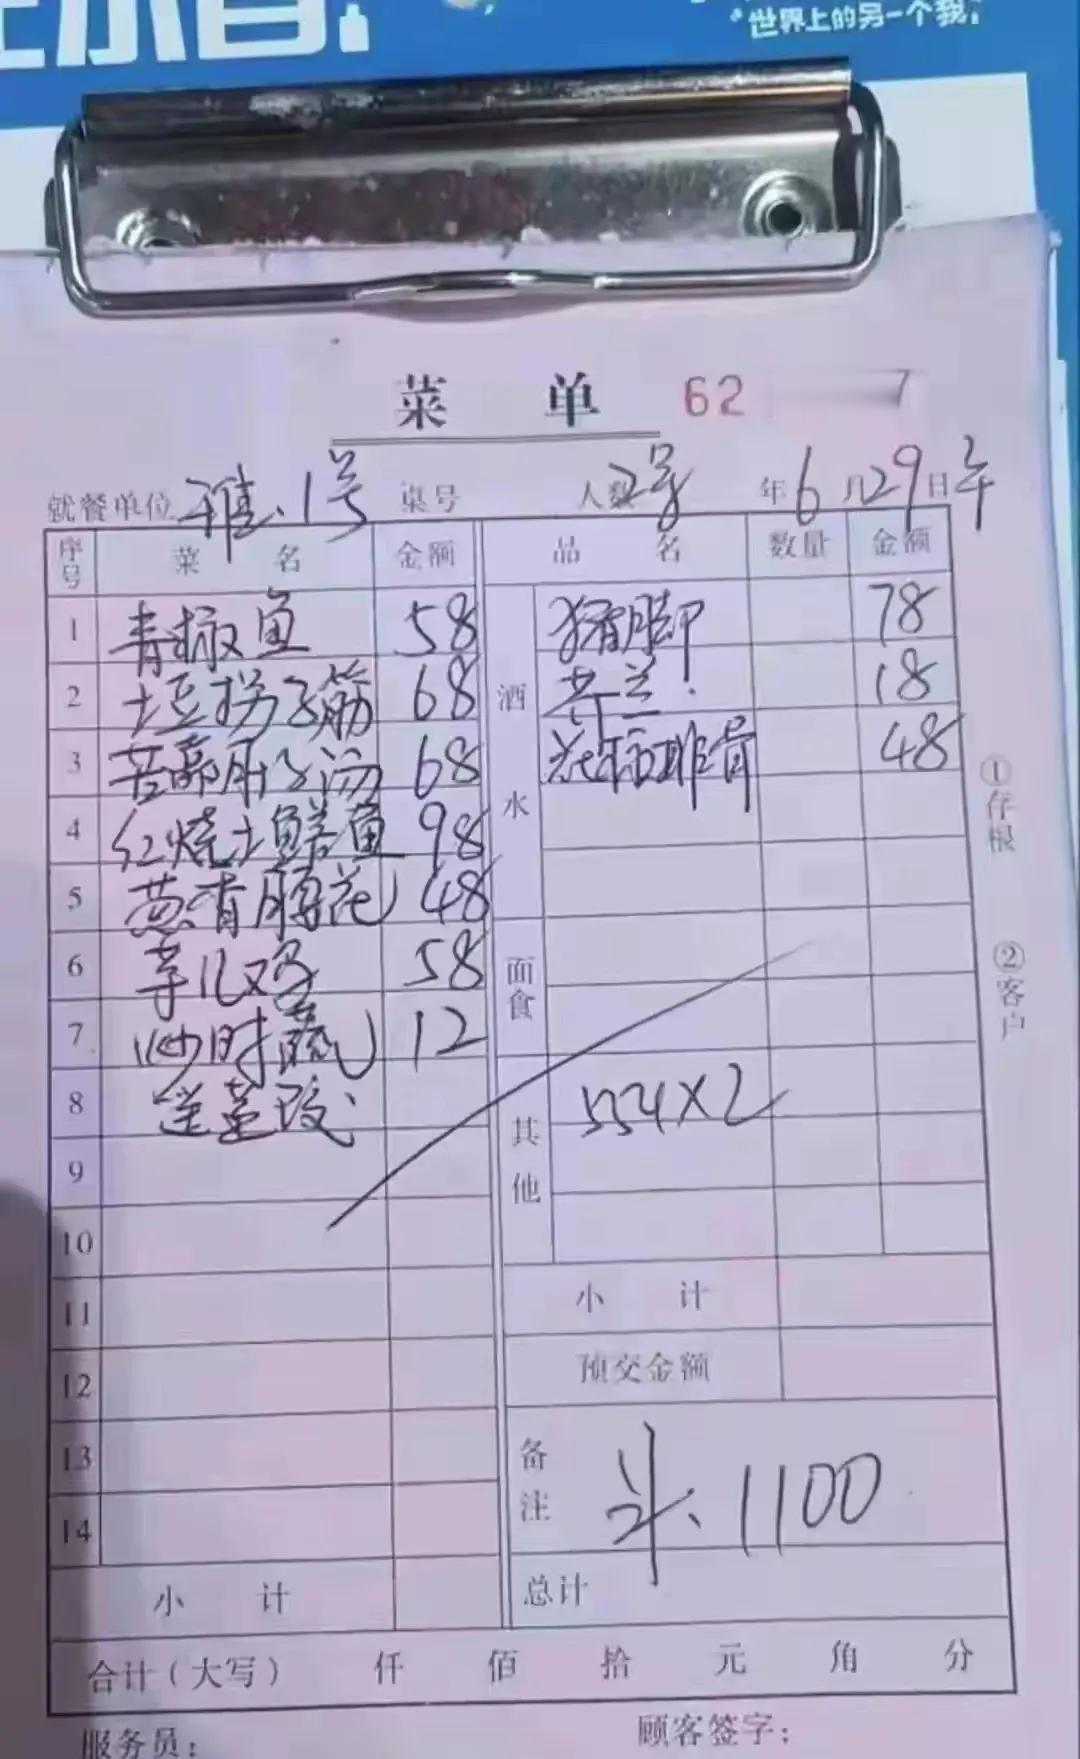 世界上的另一个我.
菜 单 62 7
就餐单位 雅.1号 桌号 人数 2号 年 6 月 29 日 午
序号 菜 名 金额 品 名 数量 金额
1 青椒鱼 58 猪脚 78
2 土豆拐子筋 68 芥兰 18
3 肚子汤 68 排骨 48
4 红烧土鳝鱼 98
5 葱香腰花 48
6 芋儿鸡 58
7 炒时蔬 12
8
9
10
11
12
13
14
酒水
面食
其他 554×2
小 计
预交金额
备注 1100
小 计
总计
合计(大写) 仟 佰 拾 元 角 分
服务员: 顾客签字:
①存根
②客户